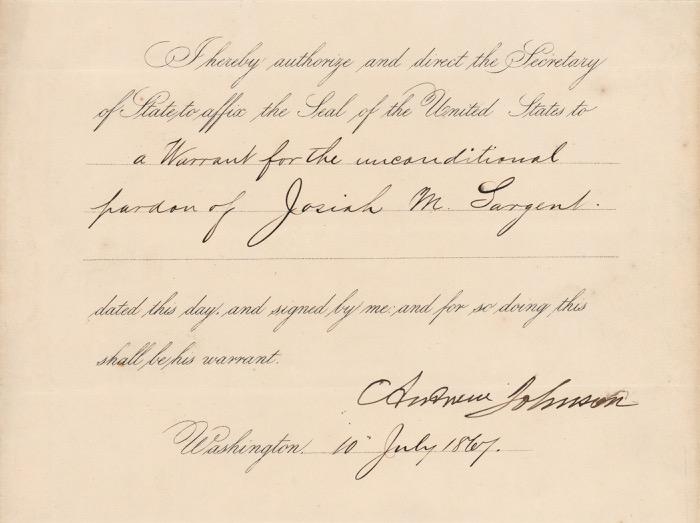 I hereby authorize and direct the Secretary
of State to affix the Seal of the United States to
a Warrant for the unconditional
pardon of Josiah M. Sargent.
dated this day, and signed by me: and for so doing this
shall be his warrant.
Andrew Johnson
Washington, 10" July 1867.